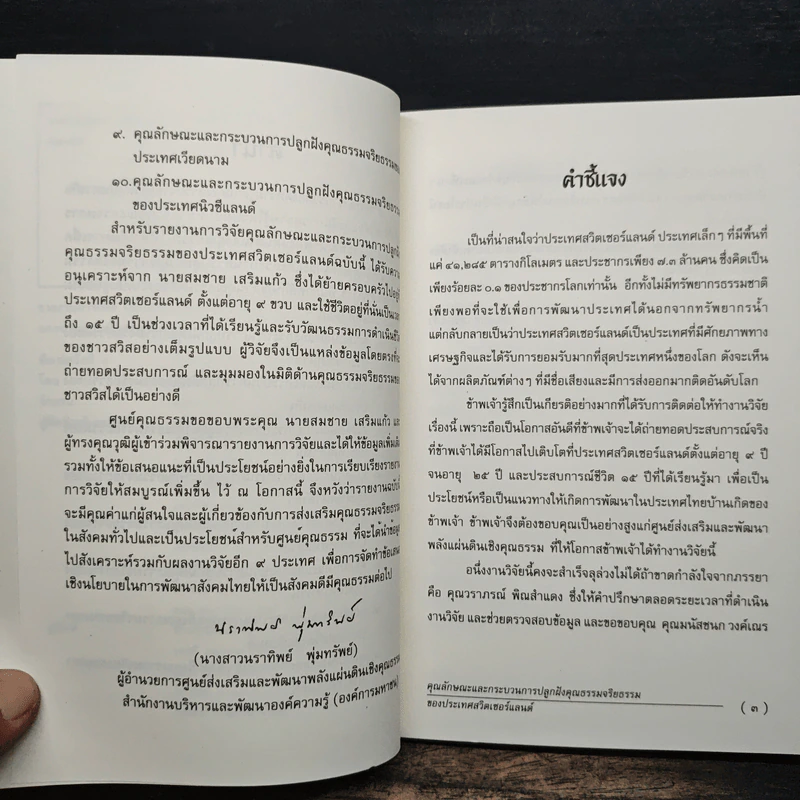 ๙. คุณลักษณะและกระบวนการปลูกฝังคุณธรรมจริยธรรม
ประเทศเวียดนาม
๑๐.คุณลักษณะและกระบวนการปลูกฝังคุณธรรมจริยธรรม
ของประเทศนิวซีแลนด์
สำหรับรายงานการวิจัยคุณลักษณะและกระบวนการปลูกฝัง
คุณธรรมจริยธรรมของประเทศสวิตเซอร์แลนด์ฉบับนี้ ได้รับความ
อนุเคราะห์จาก นายสมชาย เสริมแก้ว ซึ่งได้ย้ายครอบครัวไปอยู่
ประเทศสวิตเซอร์แลนด์ ตั้งแต่อายุ ๙ ขวบ และใช้ชีวิตอยู่ที่นั่นเป็นเวลา
ถึง ๑๕ ปี เป็นช่วงเวลาที่ได้เรียนรู้และรับวัฒนธรรมการดำเนินชีวิต
ของชาวสวิสอย่างเต็มรูปแบบ ผู้วิจัยจึงเป็นแหล่งข้อมูลโดยตรงที่จะ
ถ่ายทอดประสบการณ์ และมุมมองในมิติด้านคุณธรรมจริยธรรมของ
ชาวสวิสได้เป็นอย่างดี
ศูนย์คุณธรรมขอขอบพระคุณ นายสมชาย เสริมแก้ว และ
ผู้ทรงคุณวุฒิผู้เข้าร่วมพิจารณารายงานการวิจัยและได้ให้ข้อมูลเพิ่มเติม
รวมทั้งให้ข้อเสนอแนะที่เป็นประโยชน์อย่างยิ่งในการเรียบเรียงรายงาน
การวิจัยให้สมบูรณ์เพิ่มขึ้น ไว้ ณ โอกาสนี้ จึงหวังว่ารายงานฉบับนี้
จะมีคุณค่าแก่ผู้สนใจและผู้เกี่ยวข้องกับการส่งเสริมคุณธรรมจริยธรรม
ในสังคมทั่วไปและเป็นประโยชน์สำหรับศูนย์คุณธรรม ที่จะได้นำข้อมูล
ไปสังเคราะห์รวมกับผลงานวิจัยอีก ๙ ประเทศ เพื่อการจัดทำข้อเสนอ
เชิงนโยบายในการพัฒนาสังคมไทยให้เป็นสังคมดีมีคุณธรรมต่อไป
นราทิพย์ พุ่มทรัพย์
(นางสาวนราทิพย์ พุ่มทรัพย์)
ผู้อำนวยการศูนย์ส่งเสริมและพัฒนาพลังแผ่นดินเชิงคุณธรรม
สำนักงานบริหารและพัฒนาองค์ความรู้ (องค์การมหาชน)
คำชี้แจง
เป็นที่น่าสนใจว่าประเทศสวิตเซอร์แลนด์ ประเทศเล็กๆ ที่มีพื้นที่
แค่ ๔๑,๒๘๕ ตารางกิโลเมตร และประชากรเพียง ๗.๓ ล้านคน ซึ่งคิดเป็น
เพียงร้อยละ ๐.๑ ของประชากรโลกเท่านั้น อีกทั้งไม่มีทรัพยากรธรรมชาติ
เพียงพอที่จะใช้เพื่อการพัฒนาประเทศได้นอกจากทรัพยากรน้ำ
แต่กลับกลายเป็นว่าประเทศสวิตเซอร์แลนด์เป็นประเทศที่มีศักยภาพทาง
เศรษฐกิจและได้รับการยอมรับมากที่สุดประเทศหนึ่งของโลก ดังจะเห็น
ได้จากผลิตภัณฑ์ต่างๆ ที่มีชื่อเสียงและมีการส่งออกมากติดอันดับโลก
ข้าพเจ้ารู้สึกเป็นเกียรติอย่างมากที่ได้รับการติดต่อให้ทำงานวิจัย
เรื่องนี้ เพราะถือเป็นโอกาสอันดีที่ข้าพเจ้าจะได้ถ่ายทอดประสบการณ์จริง
ที่ข้าพเจ้าได้มีโอกาสไปเติบโตที่ประเทศสวิตเซอร์แลนด์ตั้งแต่อายุ ๙ ปี
จนอายุ ๒๕ ปี และประสบการณ์ชีวิต ๑๕ ปีที่ได้เรียนรู้มา เพื่อเป็น
ประโยชน์หรือเป็นแนวทางให้เกิดการพัฒนาในประเทศไทยบ้านเกิดของ
ข้าพเจ้า ข้าพเจ้าจึงต้องขอบคุณเป็นอย่างสูงแก่ศูนย์ส่งเสริมและพัฒนา
พลังแผ่นดินเชิงคุณธรรม ที่ให้โอกาสข้าพเจ้าได้ทำงานวิจัยนี้
อนึ่งงานวิจัยนี้คงจะสำเร็จลุล่วงไม่ได้ถ้าขาดกำลังใจจากภรรยา
คือ คุณวราภรณ์ พิณสำแดง ซึ่งให้คำปรึกษาตลอดระยะเวลาที่ดำเนิน
งานวิจัย และช่วยตรวจสอบข้อมูล และขอขอบคุณ คุณมนัสชนก วงค์เณร
คุณลักษณะและกระบวนการปลูกฝังคุณธรรมจริยธรรม
ของประเทศสวิตเซอร์แลนด์
( ๓ )